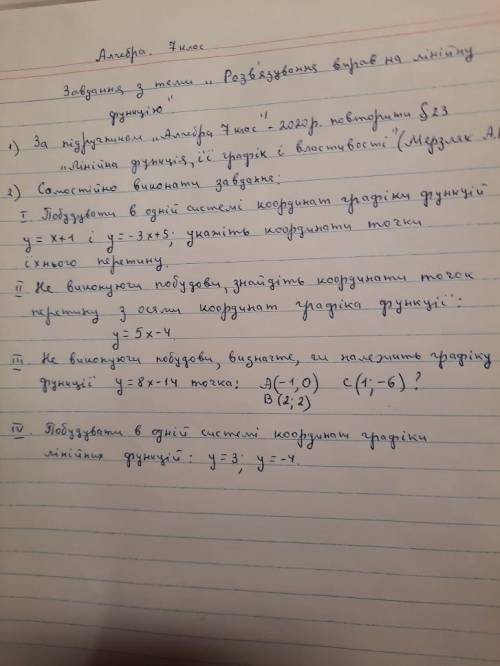 Алгебра. 7 клас
Завдання з теми „Розв'язування вправ на лінійну
функцію"
1) За підручником „Алгебра 7 клас" - 2020р. повторити § 23
„Лінійна функція, її графік і властивості" (Мерзляк А.
2) Самостійно виконати завдання:
I. Побудувати в одній системі координат графіки функцій
y = x+1 і y = -3x+5; укажіть координати точки
їхнього перетину.
II Не виконуючи побудови, знайдіть координати точок
перетину з осями координат графіка функції:
y = 5x-4.
III. Не виконуючи побудови, визначте, чи належить графіку
функції y = 8x-14 точка: A(-1; 0) C(1; -6)?
B(2; 2)
IV. Побудувати в одній системі координат графіки
лінійних функцій: y = 3; y = -4.